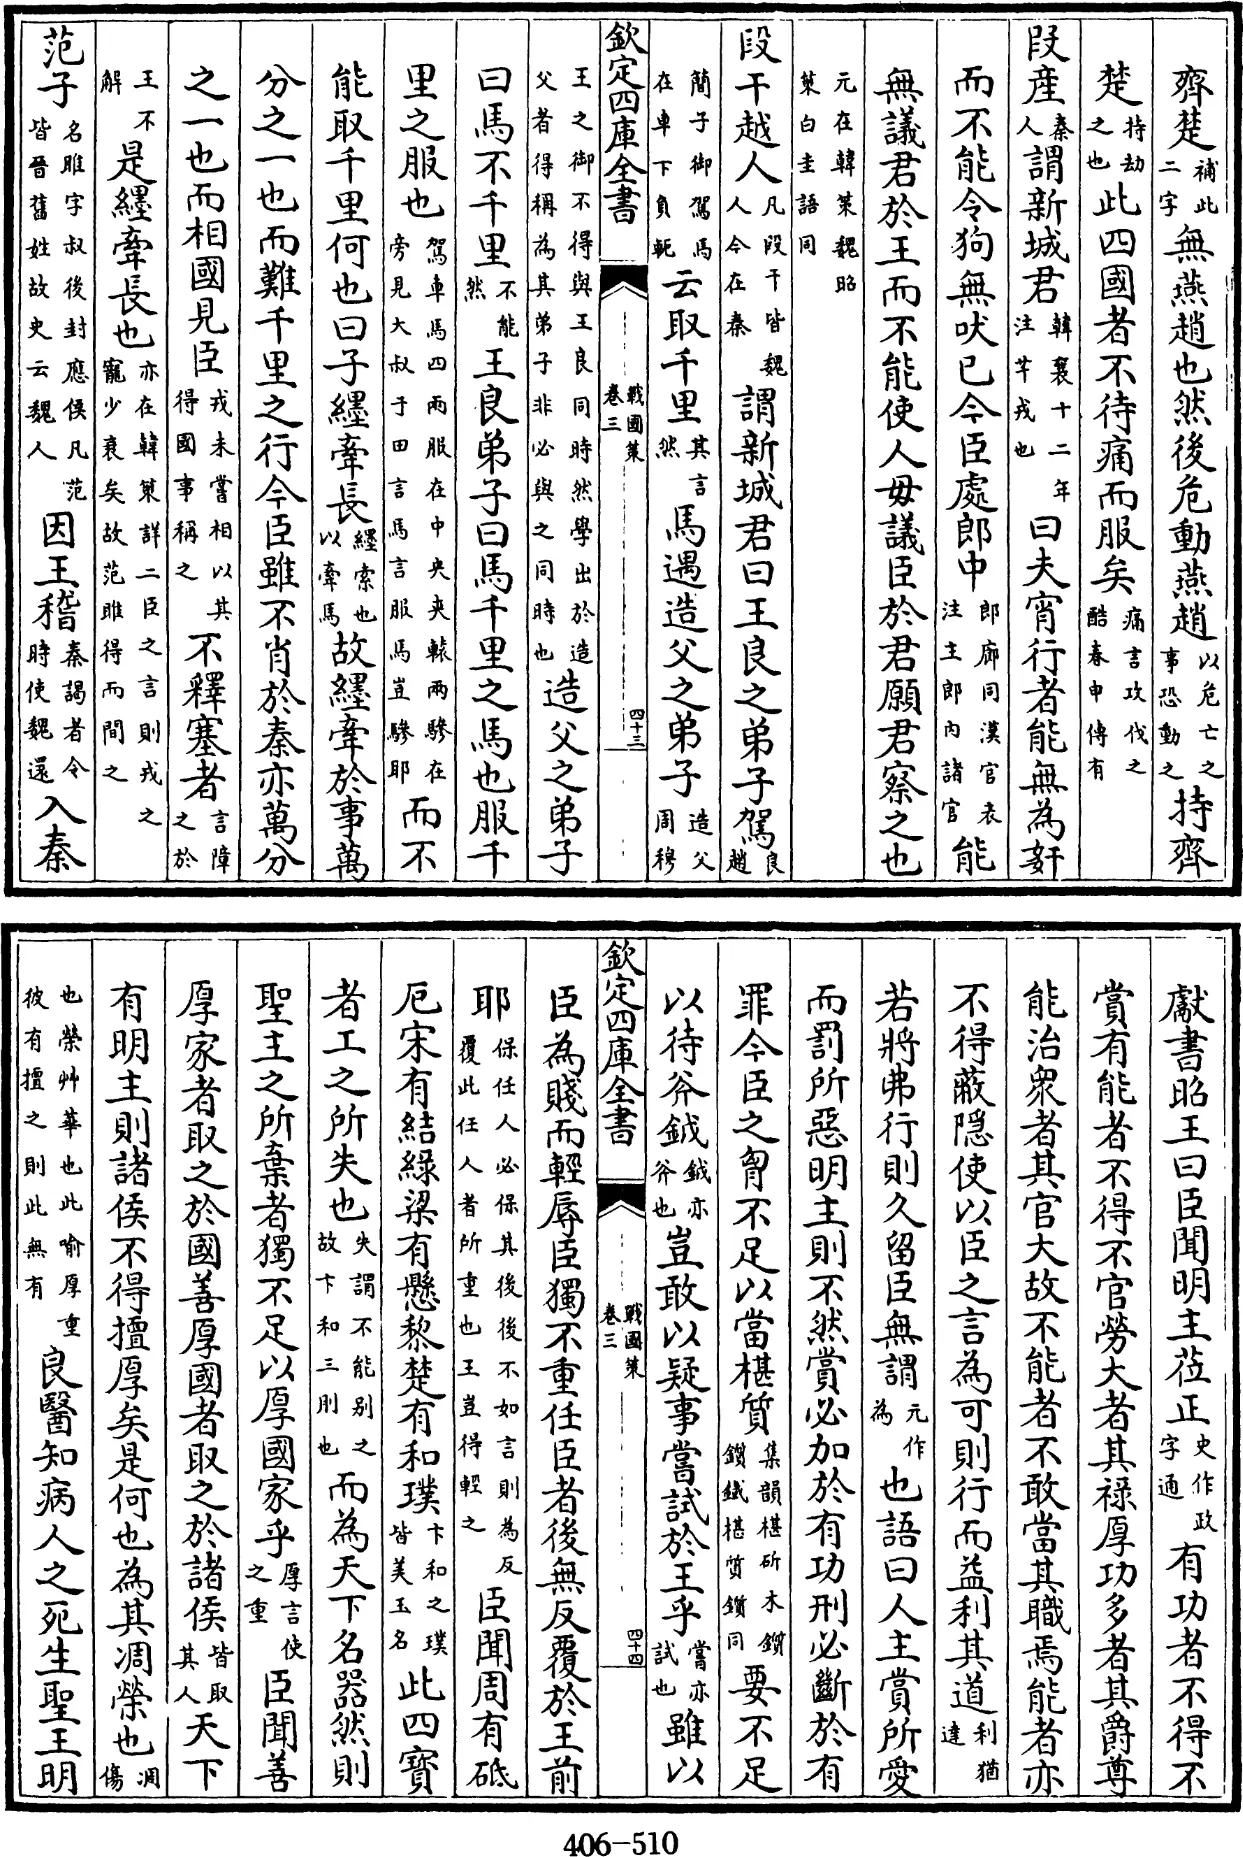 齊楚補此二字無燕趙也然後危動燕趙以危亡之事恐動之持齊
楚持劫之也此四國者不待痛而服矣痛言攻伐之酷春申傳有
段産秦人謂新城君韓襄十二年注芊戎也曰夫宵行者能無為奸
而不能令狗無吠已今臣處郎中郎廊同漢官表注主郎內諸官能
無議君於王而不能使人毋議臣於君願君察之也
元在韓策魏昭策白圭語同
段干越人凡段干皆魏人今在秦謂新城君曰王良之弟子駕良趙
簡子御駕馬在車下負軛云取千里其言然馬遇造父之弟子造父周穆
欽定四庫全書 戰國策卷三 四十三
王之御不得與王良同時然學出於造父者得稱為其弟子非必與之同時也造父之弟子
曰馬不千里不能然王良弟子曰馬千里之馬也服千
里之服也駕車馬四兩服在中央夾轅兩驂在旁見大叔于田言馬言服馬豈驂耶而不
能取千里何也曰子纆牽長纆索也以牽馬故纆牽於事萬
分之一也而難千里之行今臣雖不肖於秦亦萬分
之一也而相國見臣戎未嘗相以其得國事稱之不釋塞者言障之於
王不解是纆牽長也亦在韓策詳二臣之言則戎之寵少衰矣故范雎得而間之
范子名雎字叔後封應侯凡范皆晉舊姓故史云魏人因王稽秦謁者令時使魏還入秦
獻書昭王曰臣聞明主莅正史作政字通有功者不得不
賞有能者不得不官勞大者其祿厚功多者其爵尊
能治衆者其官大故不能者不敢當其職焉能者亦
不得蔽隠使以臣之言為可則行而益利其道利猶達
若將弗行則久留臣無謂元作為也語曰人主賞所愛
而罰所惡明主則不然賞必加於有功刑必斷於有
罪今臣之胷不足以當椹質集韻椹斫木鑕鑕鐵椹質鑕同要不足
以待斧鉞鉞亦斧也豈敢以疑事嘗試於王乎嘗亦試也雖以
欽定四庫全書 戰國策卷三 四十四
臣為賤而輕辱臣獨不重任臣者後無反覆於王前
耶保任人必保其後後不如言則為反覆此任人者所重也王豈得輕之臣聞周有砥
厄宋有結綠梁有懸黎楚有和璞卞和之璞皆美玉名此四寳
者工之所失也失謂不能别之故卞和三刖也而為天下名器然則
聖主之所棄者獨不足以厚國家乎厚言使之重臣聞善
厚家者取之於國善厚國者取之於諸侯皆取其人天下
有明主則諸侯不得擅厚矣是何也為其凋榮也凋傷
也榮艸華也此喻厚重彼有擅之則此無有良醫知病人之死生聖王明
406-510